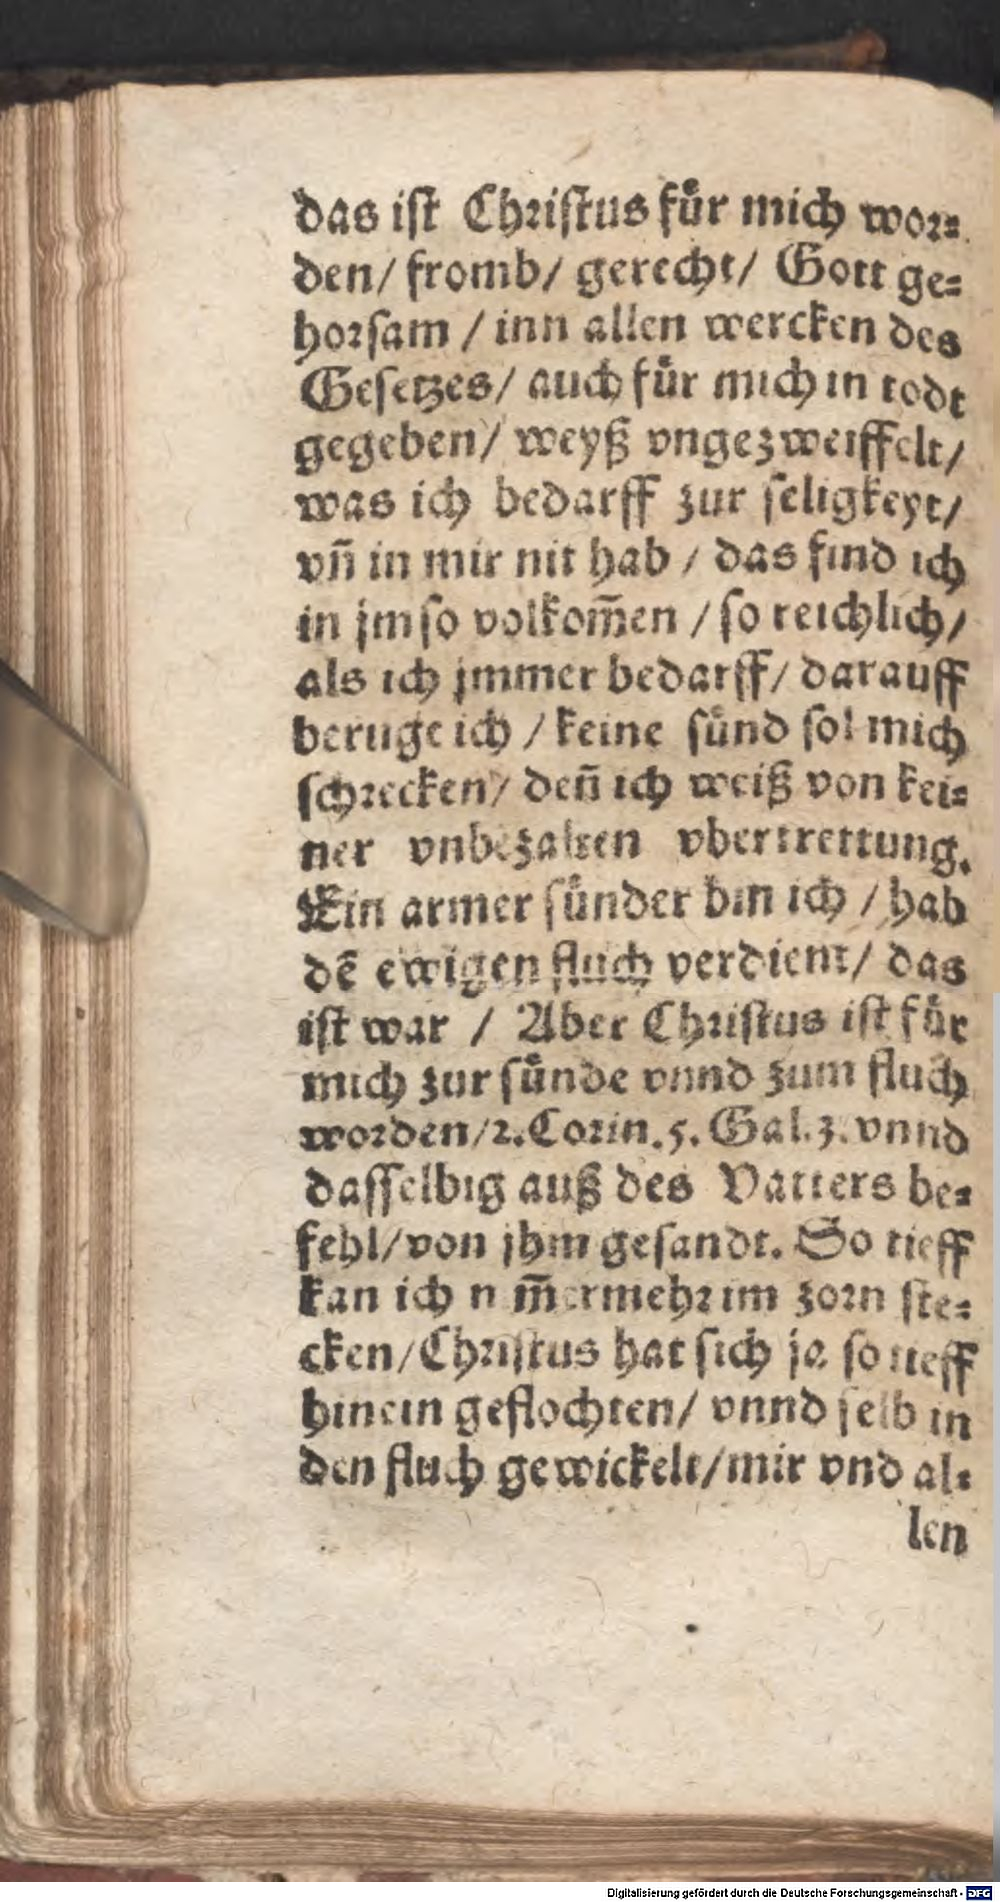 das ist Christus fuͤr mich wor⸗
den/ fromb/ gerecht/ Gott ge⸗
horsam / inn allen wercken des
Gesetzes/ auch fuͤr mich in todt
gegeben/ weyß vngezweiffelt/
was ich bedarff zur seligkeyt/
vn̄ in mir nit hab / das find ich
in jm so volkom̄en / so reichlich/
als ich jmmer bedarff/ darauff
beruge ich / keine suͤnd sol mich
schrecken/ den̄ ich weiß von kei⸗
ner vnbezalten vbertrettung.
Ein armer suͤnder bin ich / hab
dē ewigen fluch verdient/ das
ist war / Aber Christus ist fuͤr
mich zur suͤnde vnnd zum fluch
worden/2.Corin.5. Gal.3. vnnd
dasselbig auß des Vatters be⸗
fehl/von jhm gesandt. So tieff
kan ich nim̄ermehr im zorn ste⸗
cken/Christus hat sich ja so tieff
hinein geflochten/ vnnd selb in
den fluch gewickelt/mir vnd al⸗
len
Digitalisierung gefördert durch die Deutsche Forschungsgemeinschaft - DFG